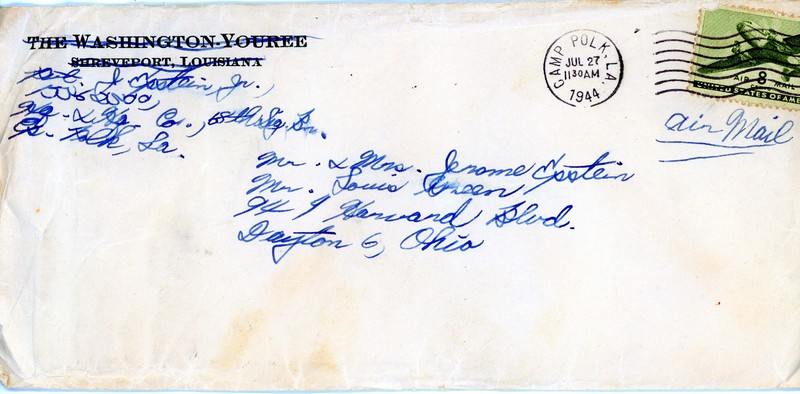 THE WASHINGTON-YOUREE
SHREVEPORT, LOUISIANA
J Epstein Jr.,
Hq. & Hq. Co., Sig. Bn.
Polk, La.
CAMP POLK, LA.
JUL 27
11 30 AM
1944
8
AIR MAIL
UNITED STATES OF AMERICA
Air Mail
Mr. & Mrs. Jerome Epstein
Mr. Louis Green
Harvard Blvd.
Dayton 6, Ohio